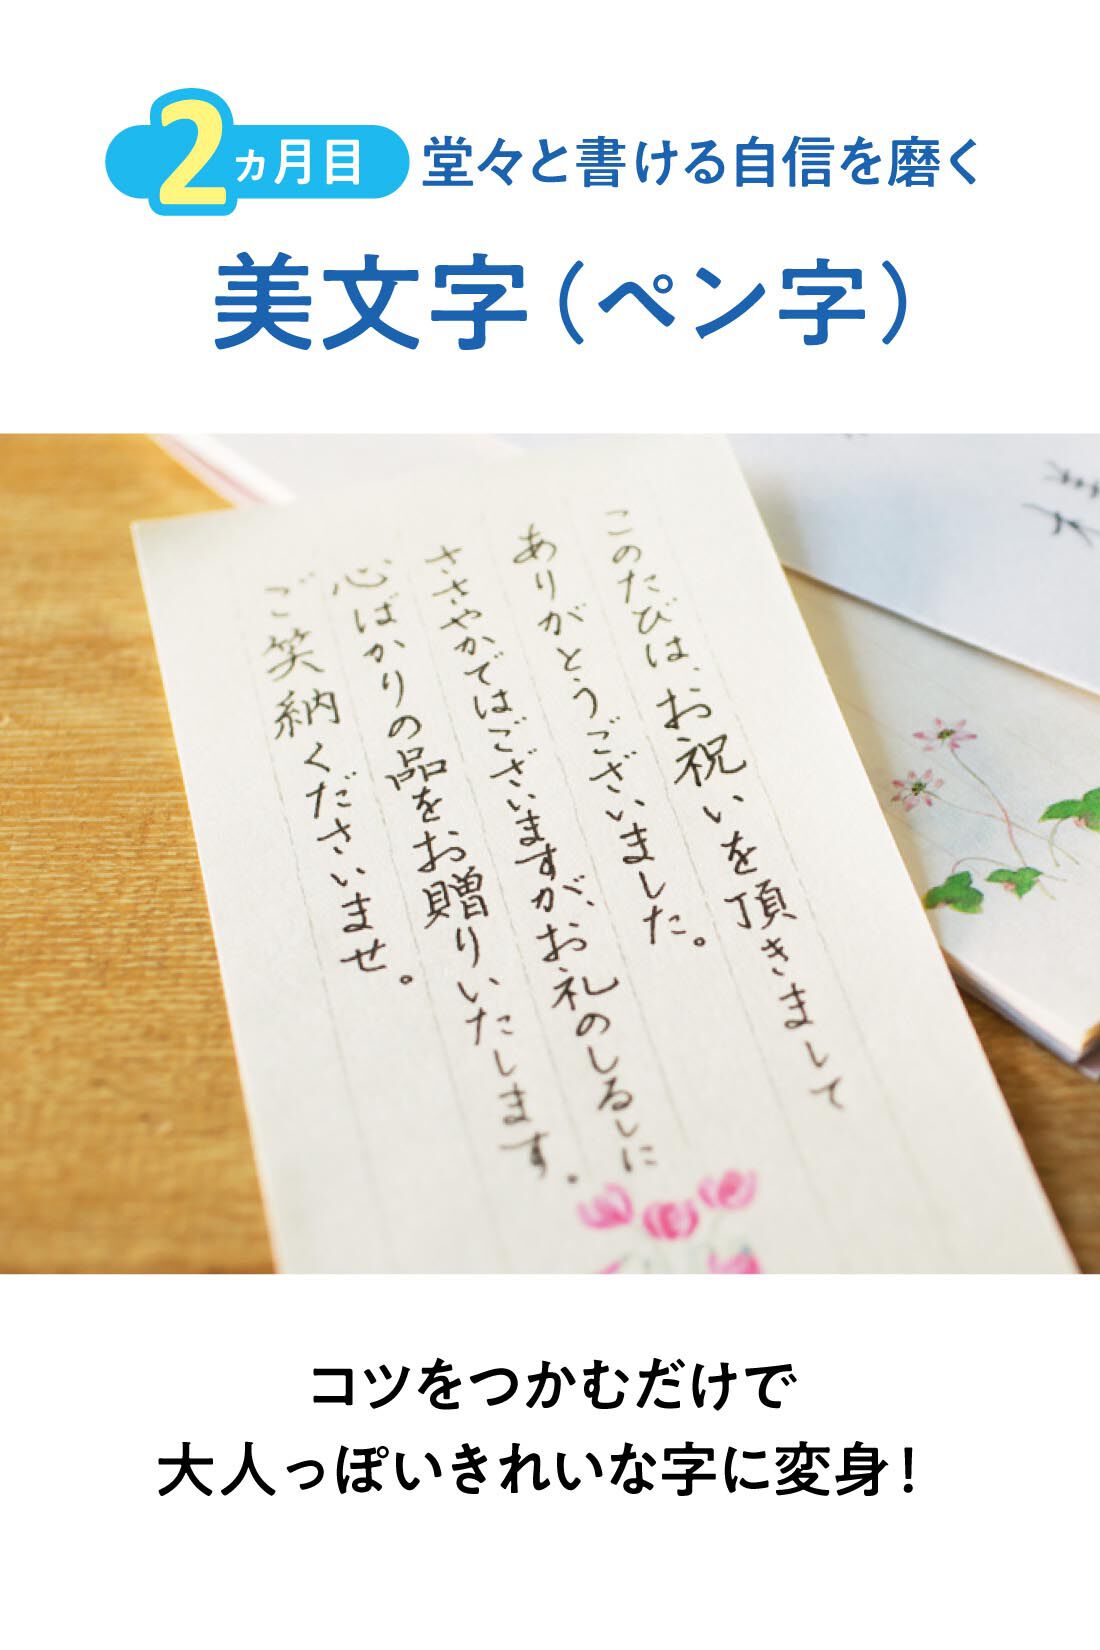 2ヵ月目 堂々と書ける自信を磨く
美文字（ペン字）
このたびは、お祝いを頂きまして
ありがとうございました。
ささやかではございますが、お礼のしるしに
心ばかりの品をお贈りいたします。
ご笑納くださいませ。
コツをつかむだけで
大人っぽいきれいな字に変身！